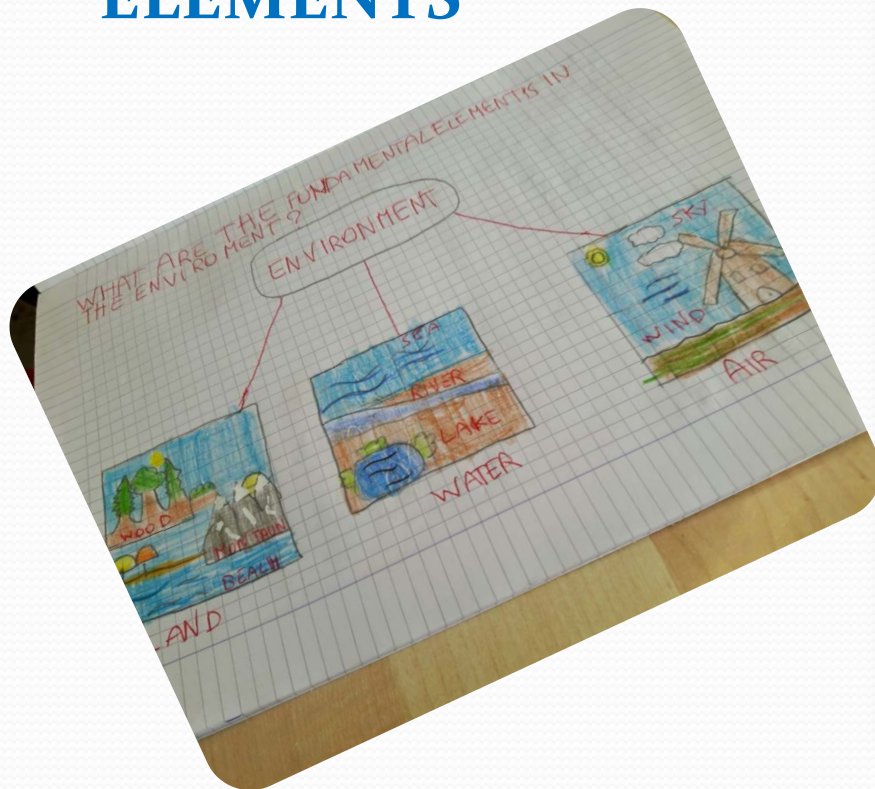 ELEMENTS
WHAT ARE THE FUNDAMENTAL ELEMENTS IN
THE ENVIROMENT?
ENVIRONMENT
SKY
WIND
AIR
SEA
RIVER
LAKE
WATER
WOOD
MOUNTAIN
BEACH
LAND